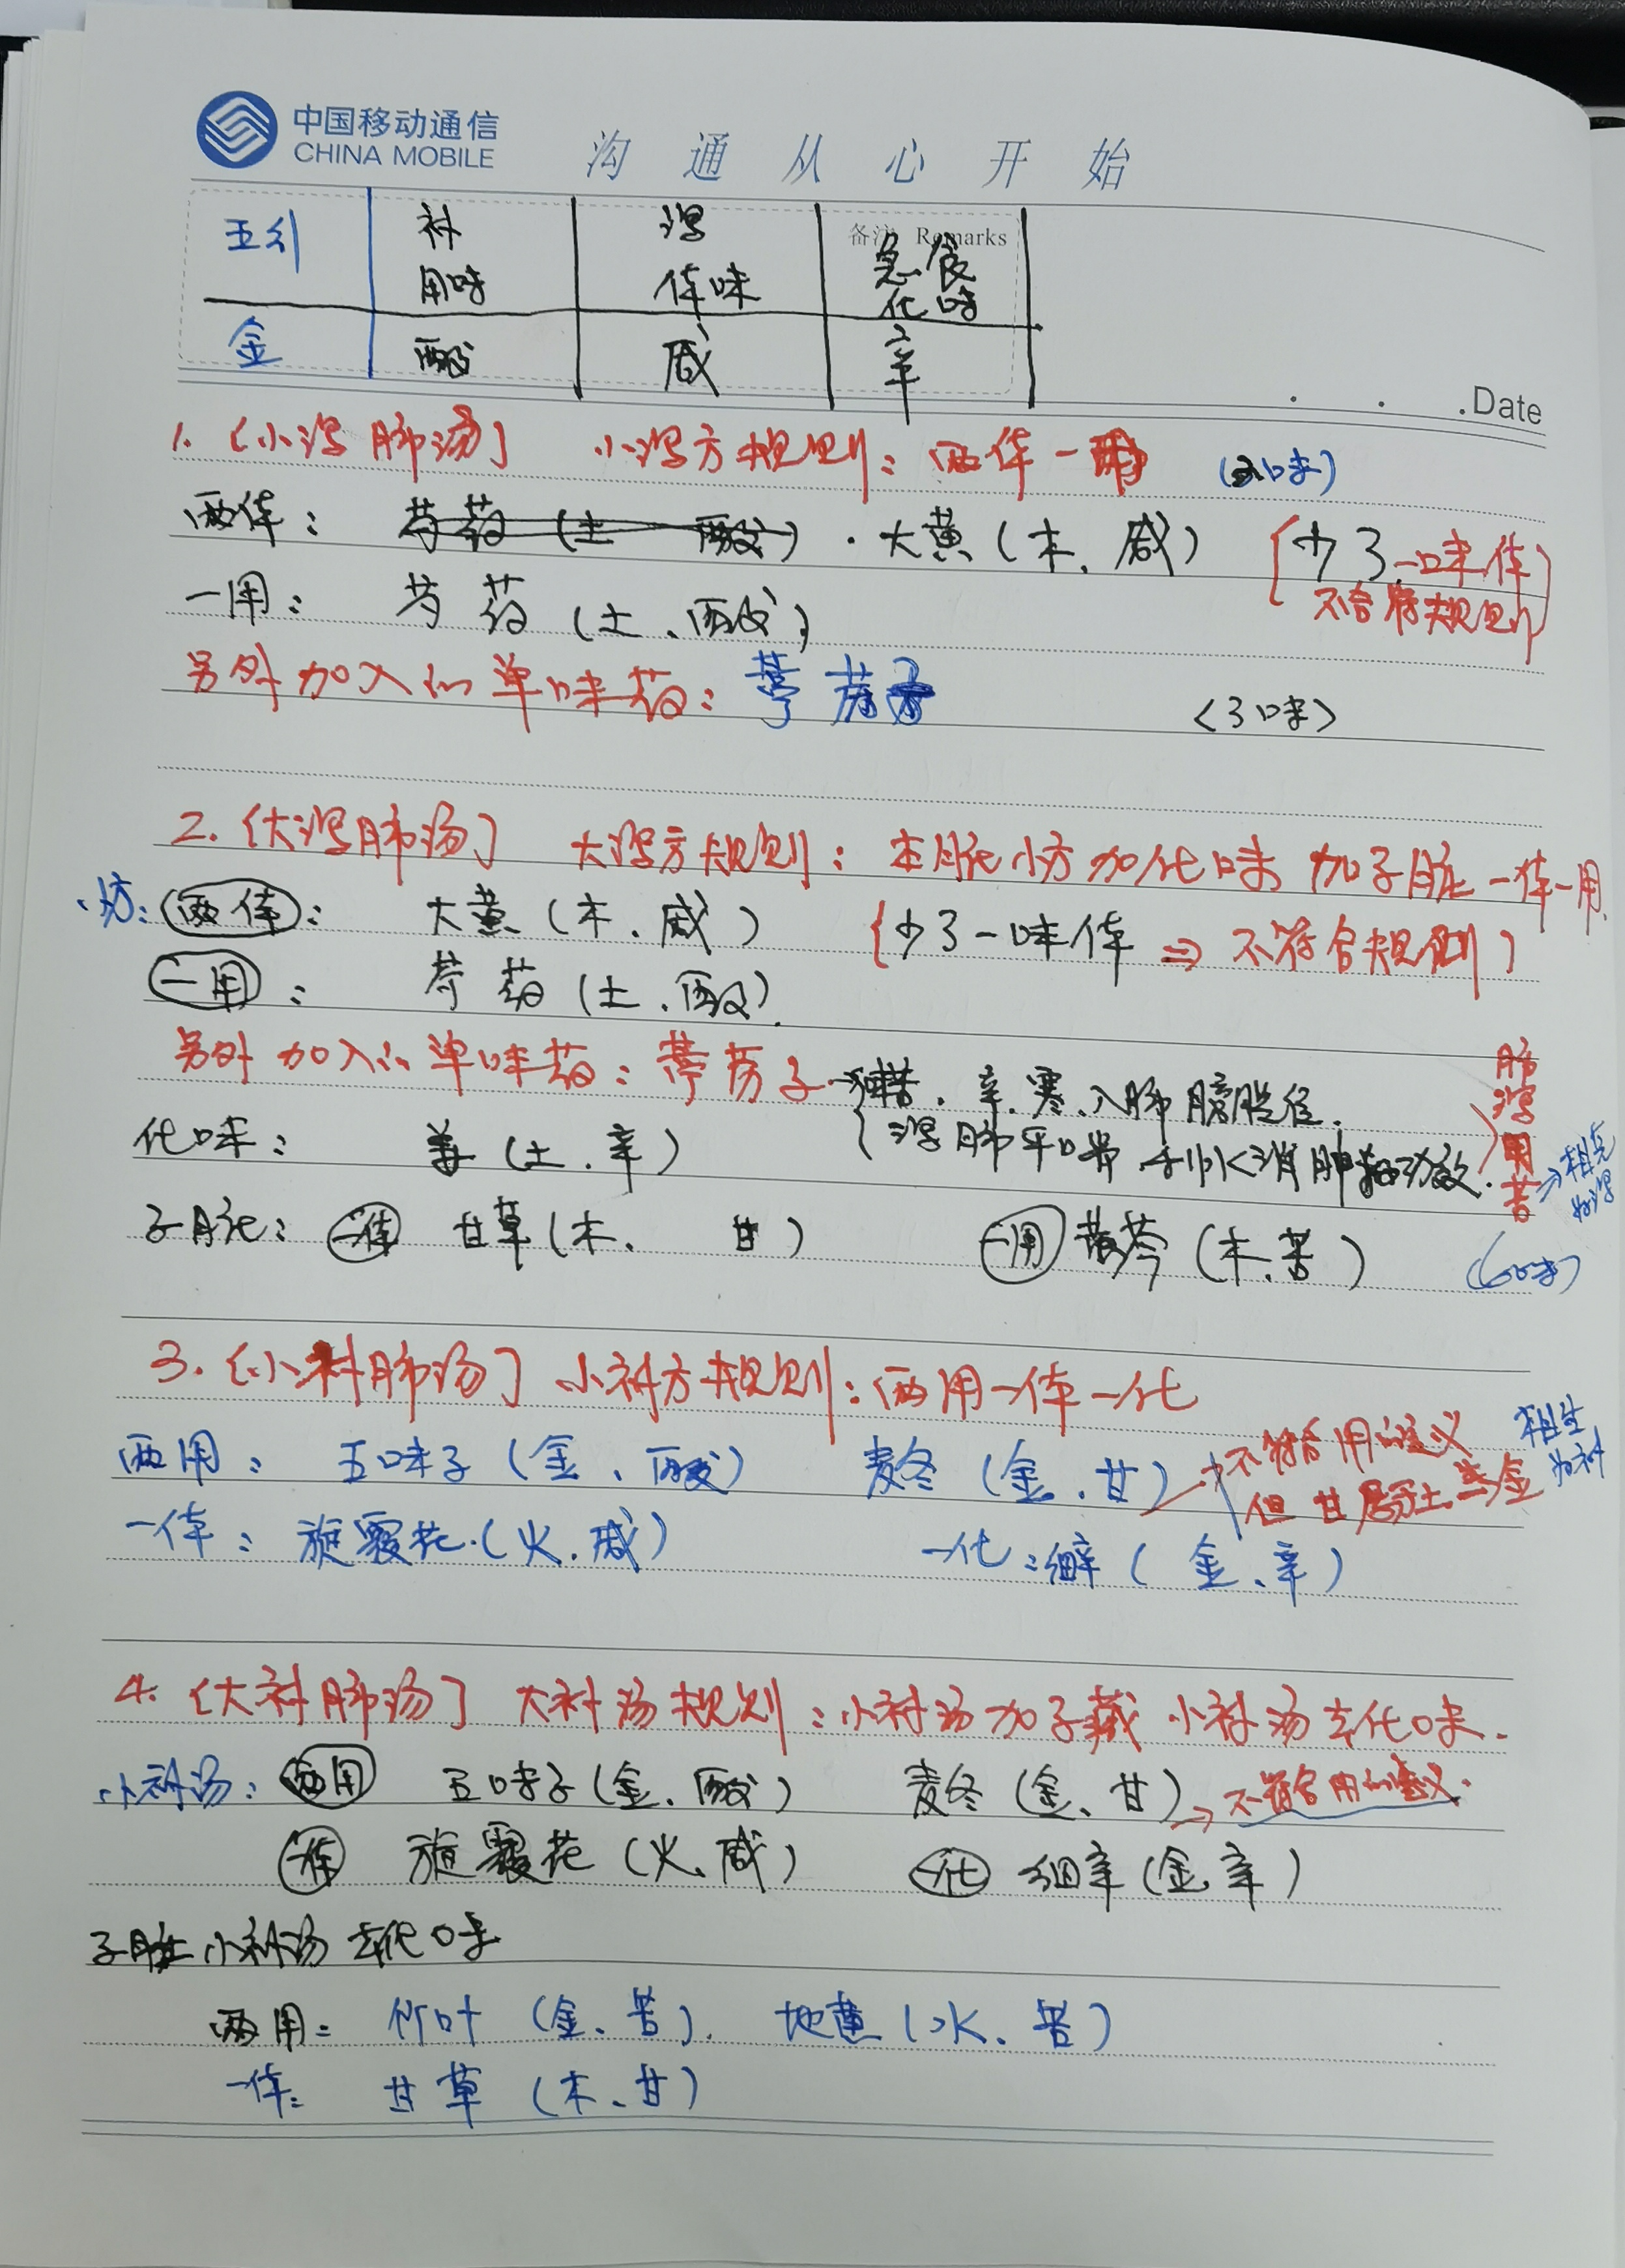 中国移动通信
CHINA MOBILE
沟通从心开始
备注 Remarks
五行 补 泻 急食
用味 体味 化味
金 酸 咸 辛
. . .Date
1.〔小泻肺汤〕 小泻方规则：两体一用 (3味)
两体： 芍药(土 酸)·大黄(木、咸) {少了一味体
不合符规则}
一用： 芍药(土、酸)
另外加入的单味药：葶苈子 <3味>
2.〔大泻肺汤〕 大泻方规则：本脏小方加化味 加子脏一体一用.
小方：两体： 大黄(木、咸) {少了一味体 ⇒ 不符合规则}
一用： 芍药(土、酸).
另外加入的单味药：葶苈子→辛、寒、入肺膀胱经.
{泻肺平喘 利水消肿功效.
肺泻用苦→相克为泻
化味： 姜(土、辛)
子脏：一体 甘草(木、 甘) 一用 黄芩(木、苦) (6味)
3.〔小补肺汤〕小补方规则：两用一体一化
两用： 五味子(金、酸) 麦冬(金、甘)→不符合用的定义
但甘属于土 土生金 相生为补
一体：旋覆花.(火、咸) 一化：细辛(金、辛)
4.〔大补肺汤〕大补汤规则：小补汤加子藏小补汤去化味.
小补汤：两用 五味子(金、酸) 麦冬(金、甘)→不符合用的定义.
一体 旋覆花(火、咸) 一化 细辛(金、辛)
子脏小补汤去化味
两用： 竹叶(金、苦). 地黄(水、苦)
一体： 甘草(木、甘)